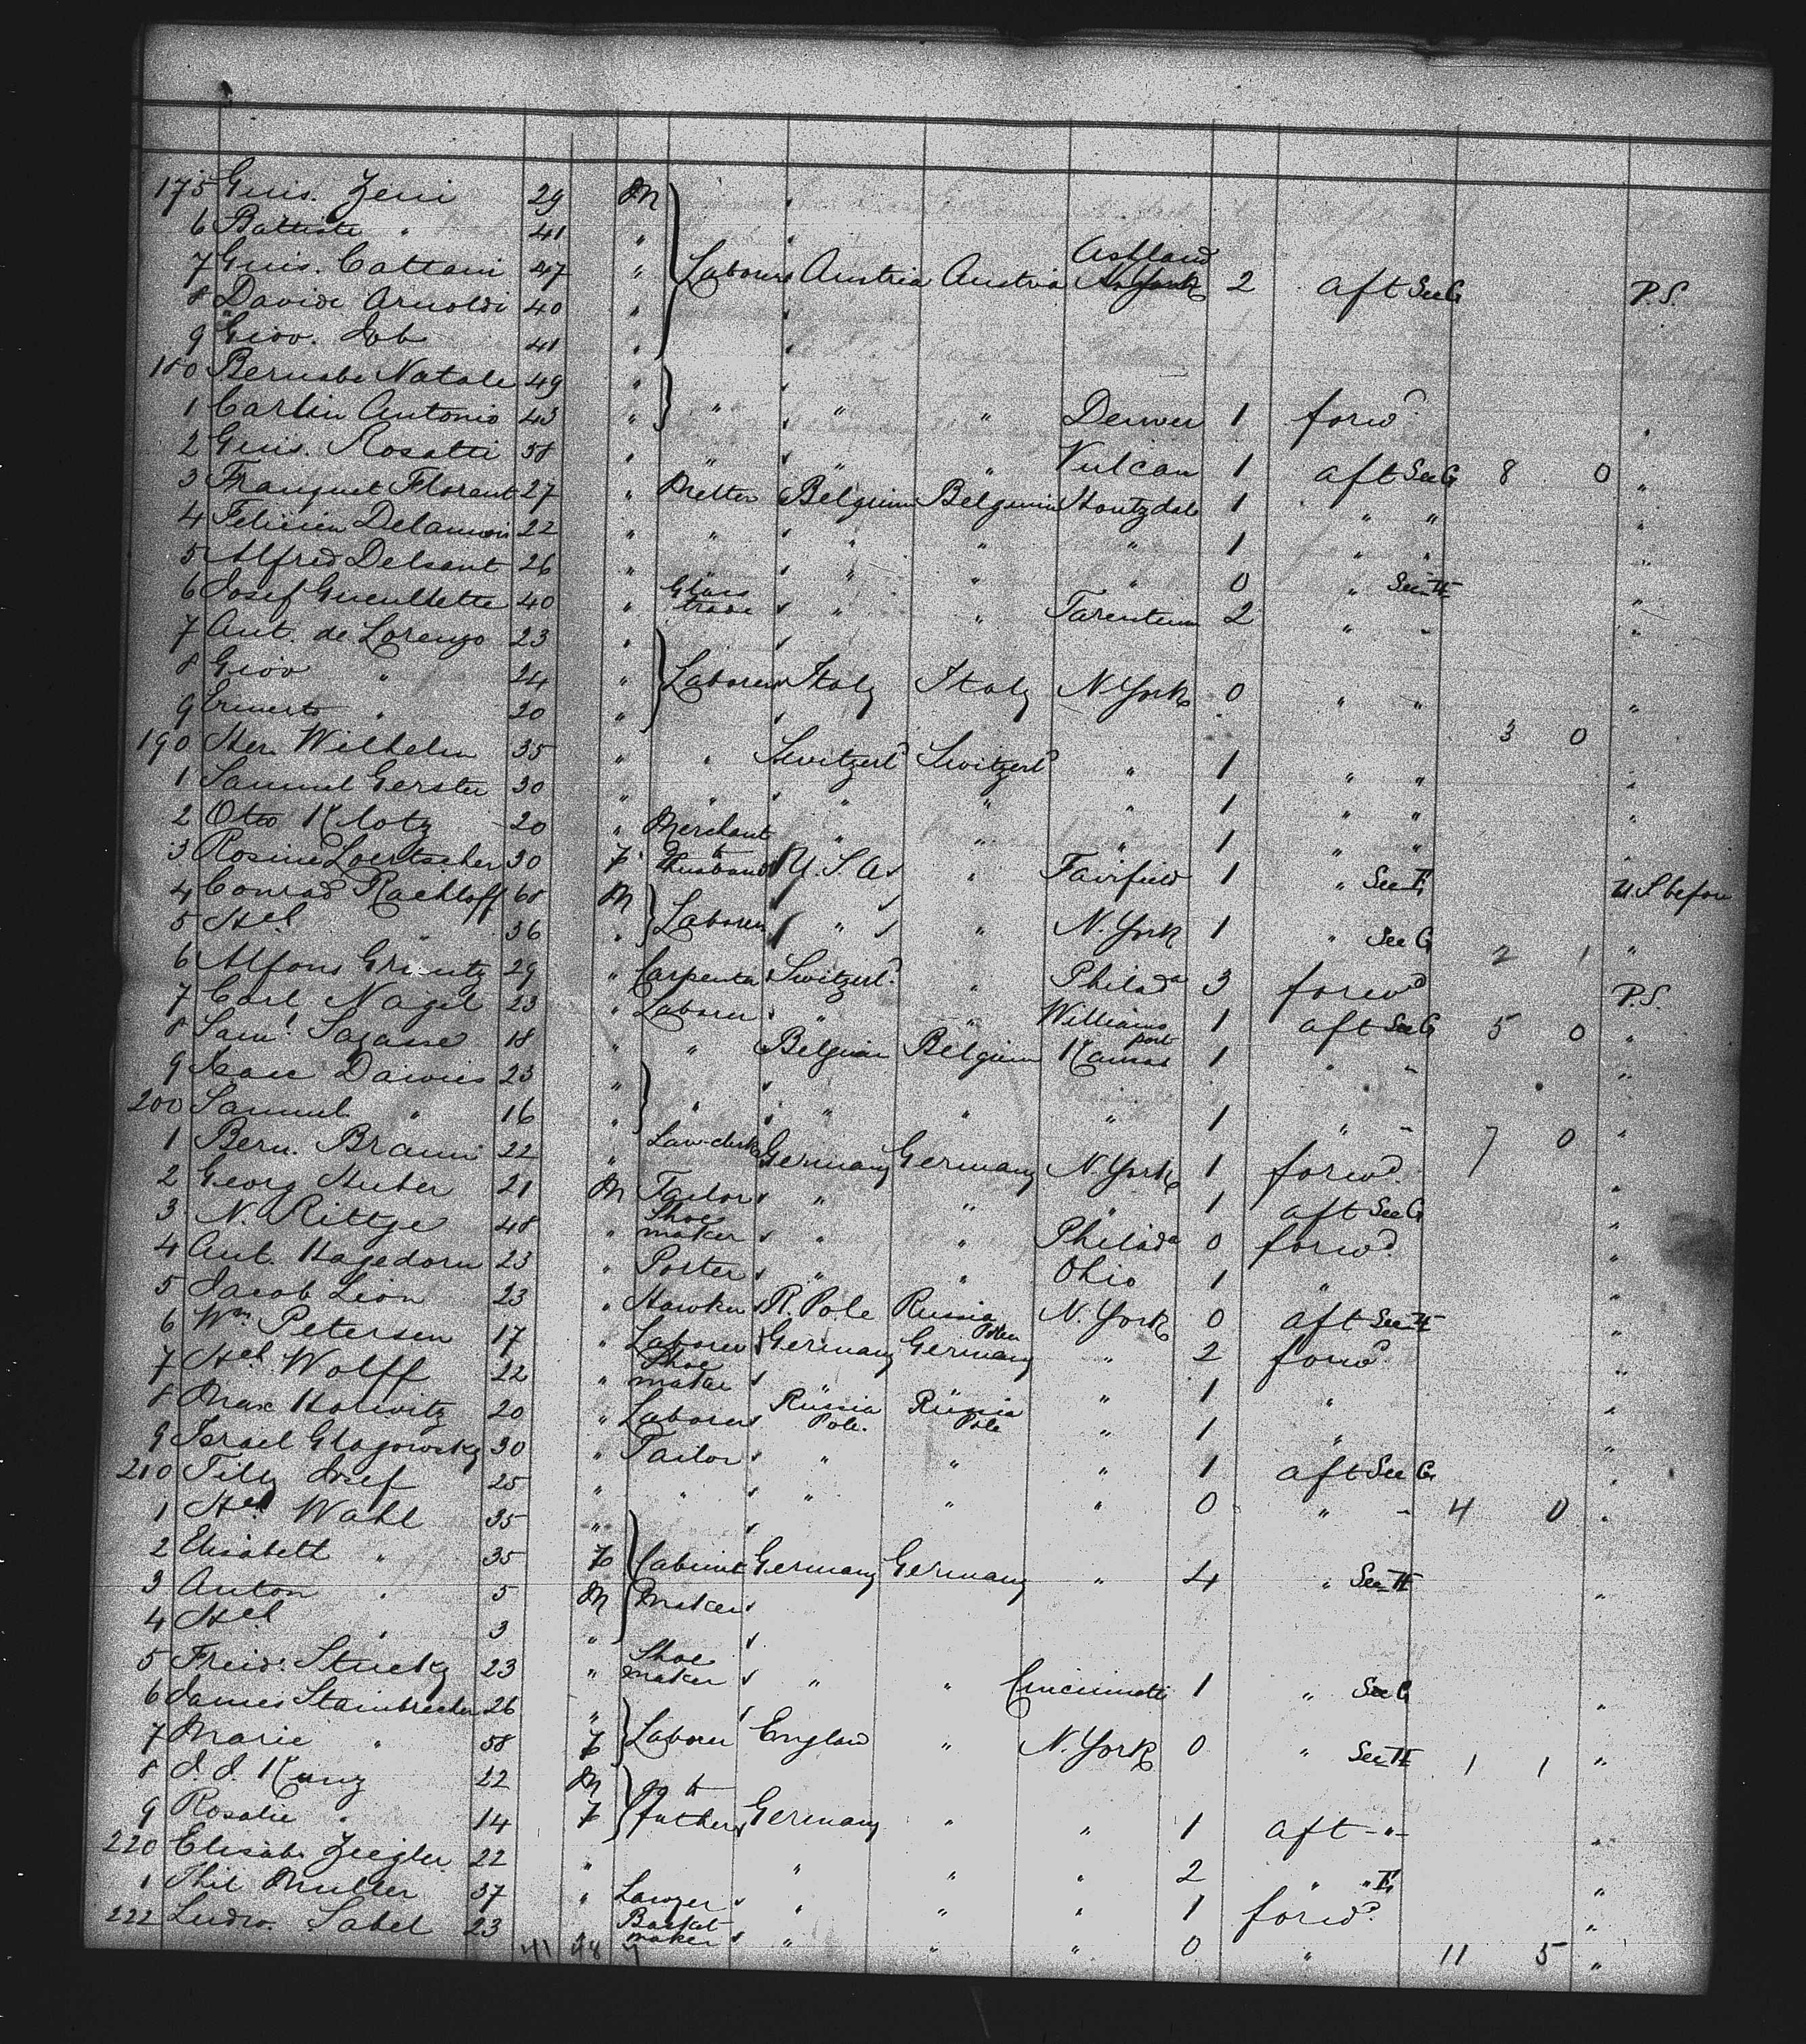 175 Guis. Zeni 29 M "
6 Battista " 41 "
7 Guis. Cattani 47 " Laborers Austria Austria Ashland N. York 2 aft Sec G P.S.
8 Davide Arnoldi 40 "
9 Giov. Job 41 "
180 Bernabe Natale 49 "
1 Carlin Antonio 43 " " " " Denver 1 forwd "
2 Guis. Rosatti 38 " " " " Vulcan 1 aft Sec G 8 0 "
3 Franquet Florent 27 " Melter Belgium Belgium Houtzdale 1 " " "
4 Felicien 22 " " " " " 1 " " "
5 Alfred Delsant 26 " " " " " 0 " Sec H "
6 Josef Gueullette 40 " Glass trade " " Tarentum 2 " " "
7 Ant. de Lorenzo 23 "
8 Giov " 24 " Laborers Italy Italy N. York 0 " " "
9 " 20 " 3 0
190 Her. Wilhelm 35 " " Switzerld Switzerld " 1 " " "
1 Samuel Gerster 30 " " " " " 1 " " "
2 Otto Klotz 20 " Merchant " " " 1 " " "
3 Rosine Loertscher 30 F to Husband U.S.A. " Fairfield 1 " Sec E U.S before
4 Conrad Rachloff 68 M
5 Hch " 36 " Laborers " " N. York 1 " Sec G 2 1 "
6 Alfons 29 " Carpenter Switzerld. " Philada 3 forwd P.S.
7 Carl Nagel 23 " Laborer " " Williams port 1 aft Sec G 5 0 "
8 Saml. 18 " " Belgium Belgium Kansas 1 " " "
9 23 "
200 Samuel " 16 " " " " " 1 " " 7 0 "
1 Bern. Braun 22 " Law-clerk Germany Germany N. York 1 forwd. "
2 Georg Huber 21 M Tailor " " " 1 aft Sec G "
3 N. Rittge 48 " Shoe maker " " Philada 0 forwd "
4 Ant. Hagedorn 23 " Porter " " Ohio 1 " "
5 Jacob Lion 23 " Hawker R. Pole Russia Polen N. York 0 aft Sec H "
6 Wm Petersen 17 " Laborer Germany Germany " 2 forwd "
7 Hch Wolff 22 " Shoe maker " 1 " "
8 Max Horwitz 20 " Laborer Russia Pole. Russia Pole " 1 " "
9 Israel Glagowsky 30 " Tailor " " " 1 aft Sec G "
210 Tilly Josef 25 " " " " " 0 " " 4 0 "
1 Hch Wahl 35 "
2 Elisabeth " 35 F Cabinet Germany Germany " 4 " Sec H "
3 Anton " 5 M Maker
4 Hch " 3 "
5 Freid. Stucky 23 " Shoe maker " " Cincinnati 1 " Sec G "
6 James Stainbrecher 26 "
7 Marie " 58 F Laborer England " N. York 0 " Sec H 1 1 "
8 J. J. Kunz 22 M
9 Rosalie " 14 F to father Germany " " 1 aft - " - "
220 Elisab. Ziegler 22 " " " " 2 " " E "
1 Phil Muller 37 " Lawyer " " " 1 forwd. "
222 Ludw. Sabel 23 Basket maker " " " 0 " 11 5 "